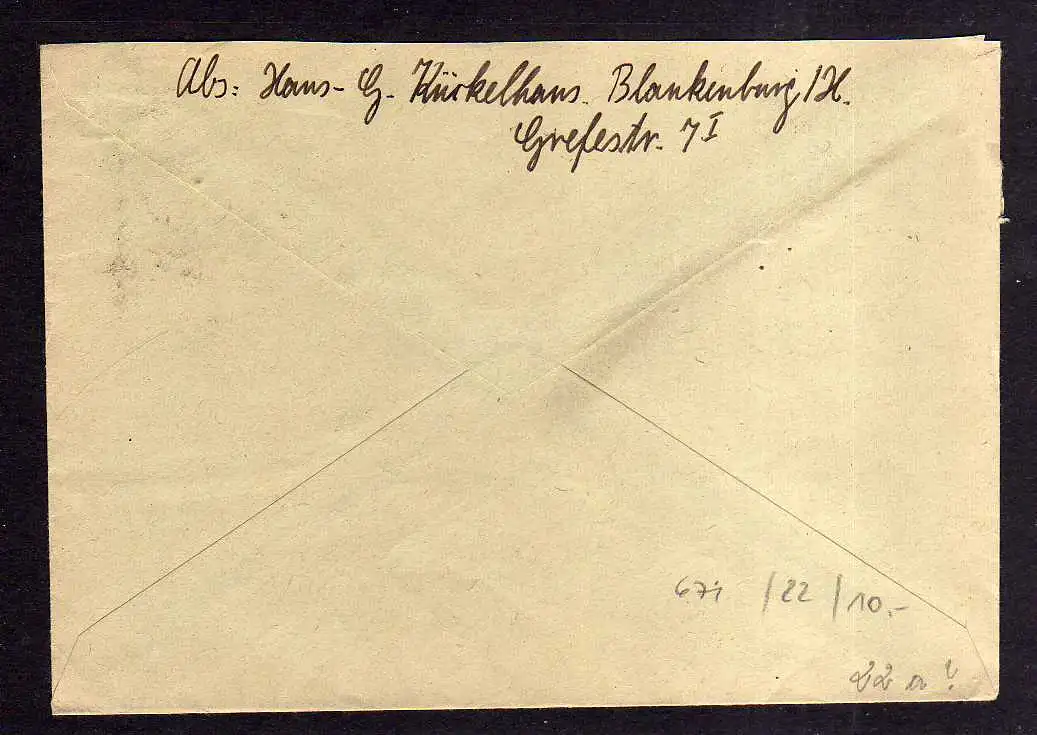 Abs: Hans-G. Kückelhaus. Blankenburg/H.
Grefestr. 7 I
67i /22 /10.-
22 a?